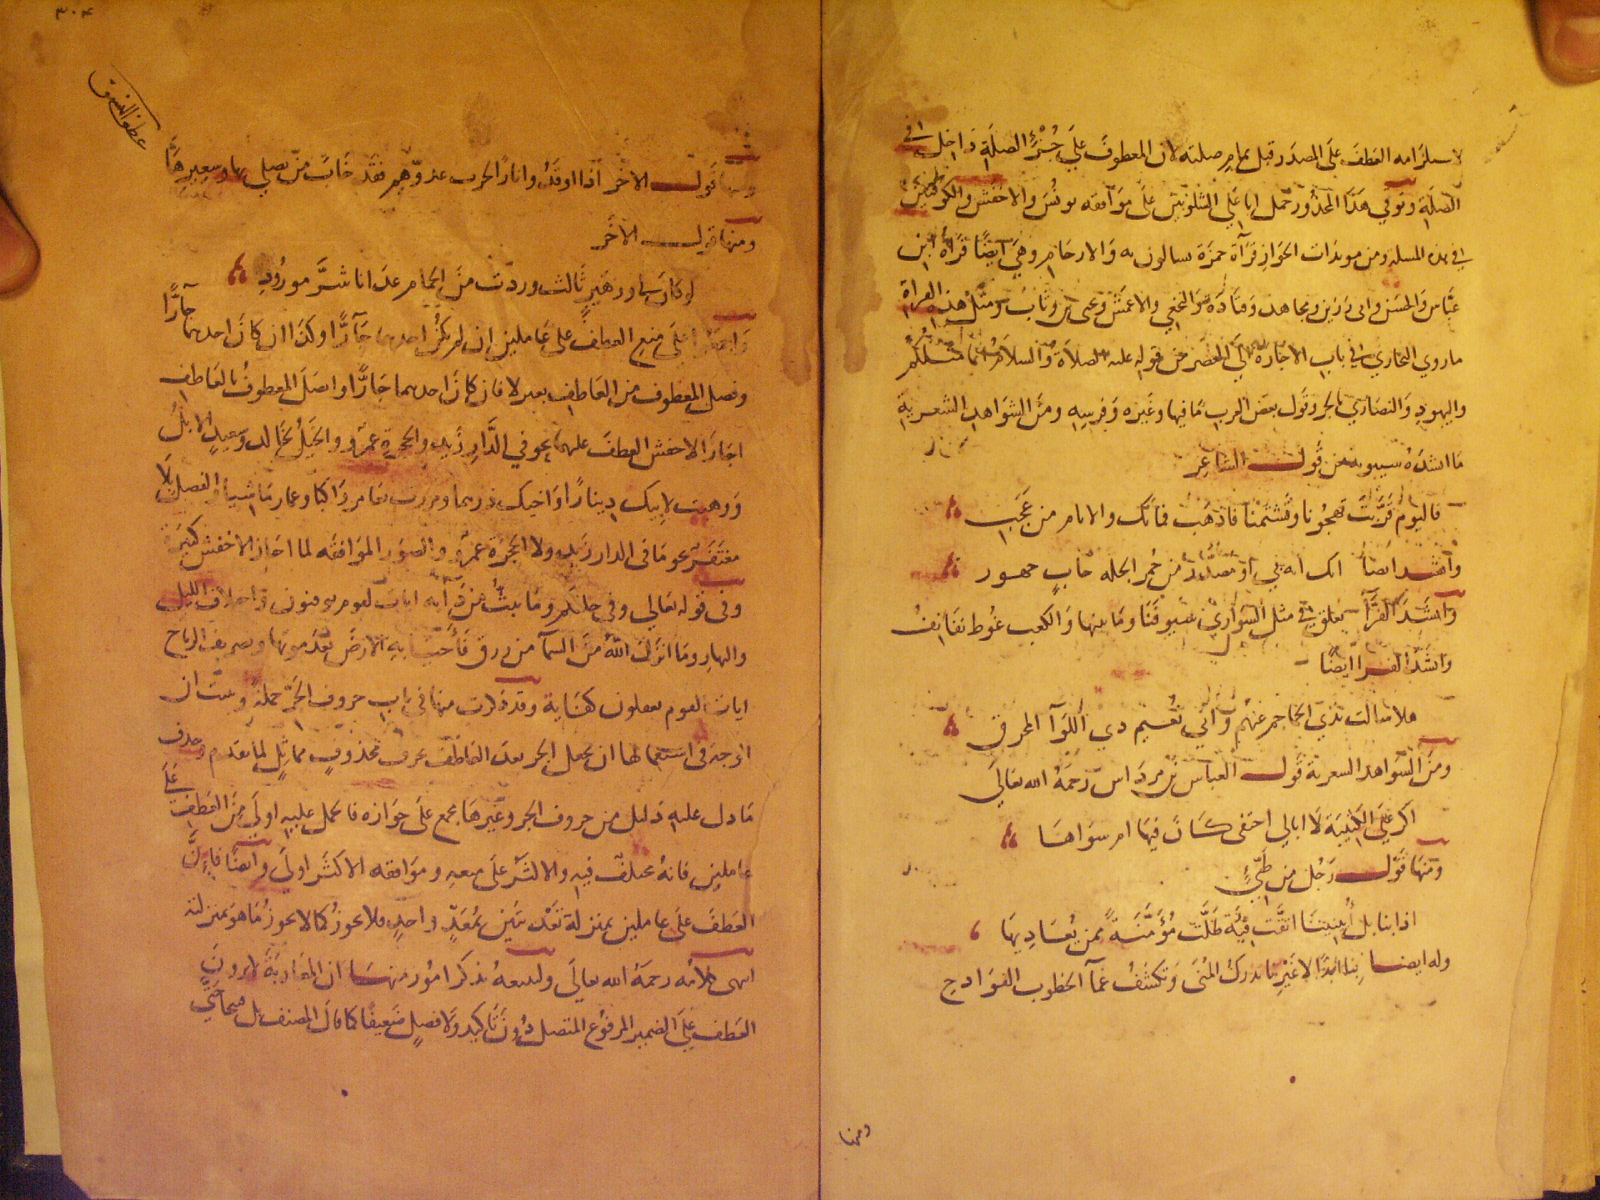 لاستلزامه العطف على المصدر قبل تمام صلته لان المعطوف على جزء الصلة داخل في
الصلة وتوقي هذا المحذور حمل ابا علي الشلوبين على موافقة يونس والاخفش والكوفيين
في هذه المسله ومن مويدات الجواز قراة حمزة تسالون به والارحام وهي ايضا قراة ابن
عباس والحسن وابي رزين ومجاهد وقتادة والنخعي والاعمش ويحيى بن وثاب ومثل هذه القراة
ما روي البخاري في باب الاجارة الى العصر من قوله عليه الصلاة والسلام انما مثلكم
واليهود والنصارى بالجر وقول بعض العرب ما فيها وغيره وفرسه ومن الشواهد الشعرية
ما انشده سيبويه من قول الشاعر
فاليوم قربت تهجونا وتشتمنا فاذهب فما بك والايام من عجب
وانشد ايضا ابك ايه بي او مصدر من حمر الجلة جاب حشور
وانشد الفرا تعلق في مثل السواري سيوفنا وما بينها والكعب غوط نفانف
وانشد الفرا ايضا
هلا سالت بذي الجماجم عنهم وابي نعيم ذي اللوآ المحرق
ومن الشواهد الشعرية قول العباس بن مرداس رحمه الله تعالى
اكر على الكتيبة لا ابالي احتفي كان فيها ام سواها
ومنها قول رجل من طيئ
اذا بنا بل انيسنا اتقت فئة ظلت مؤمنة ممن يعاديها
وله ايضا بنا ابدا لا غيرنا تدرك المنى وتكشف غمآ الخطوب الفوادح
ومنها
٣٠٤
عطف النسق
ومنها قول الاخر اذا اوقدوا نارا لحرب عدوهم فقد خاب من يصلي بها وسعيرها
ومنها قول الاخر
وردت من الحمام عدانا شر مورود
على منع العطف على عاملين ان لم يكن احدهما جارا وكذا ان كان احدهما جارا
وفصل المعطوف من العاطف بغير لا فان كان احدهما جارا واتصل المعطوف بالعاطف
اجاز الاخفش العطف عليهما نحو في الدار زيد والحجرة عمرو والخيل لخالد وسعيد الابل
ووهبت لابيك دينارا واخيك درهما ومررت بعامر راكبا وعمار ماشيا والفصل بلا
مغتفر نحو ما في الدار زيد ولا الحجرة عمرو والصور الموافقة لما اجاز الاخفش كثيرة
وفي قوله تعالى وفي خلقكم وما يبث من دآبه ايات لقوم يوقنون واختلاف الليل
والنهار وما انزل الله من السمآ من رزق فاحيا به الارض بعد موتها وتصريف الرياح
ايات لقوم يعقلون كفاية وقد ذكرت منها في باب حروف الجر جملة وبينت ان
الوجه في استعمالها ان يجعل الجر بعد العاطف بحرف محذوف مماثل لما تقدم وحذف
ما دل عليه دليل من حروف الجر وغيرها مجمع على جوازه فالحمل عليه اولى من العطف على
عاملين فانه مختلف فيه والاكثر على منعه وموافقه الاكثر اولى وايضا فان
العطف على عاملين بمنزلة تعديتين بمعد واحد فلا يجوز كما لا يجوز ما هو بمنزلته
انتهى كلامه رحمه الله تعالى ولنتبعه بذكر امور منها ان المغاربة لا يرون
العطف على الضمير المرفوع المتصل دون تاكيد ولا فصل ضعيفا كما قال المصنف بل